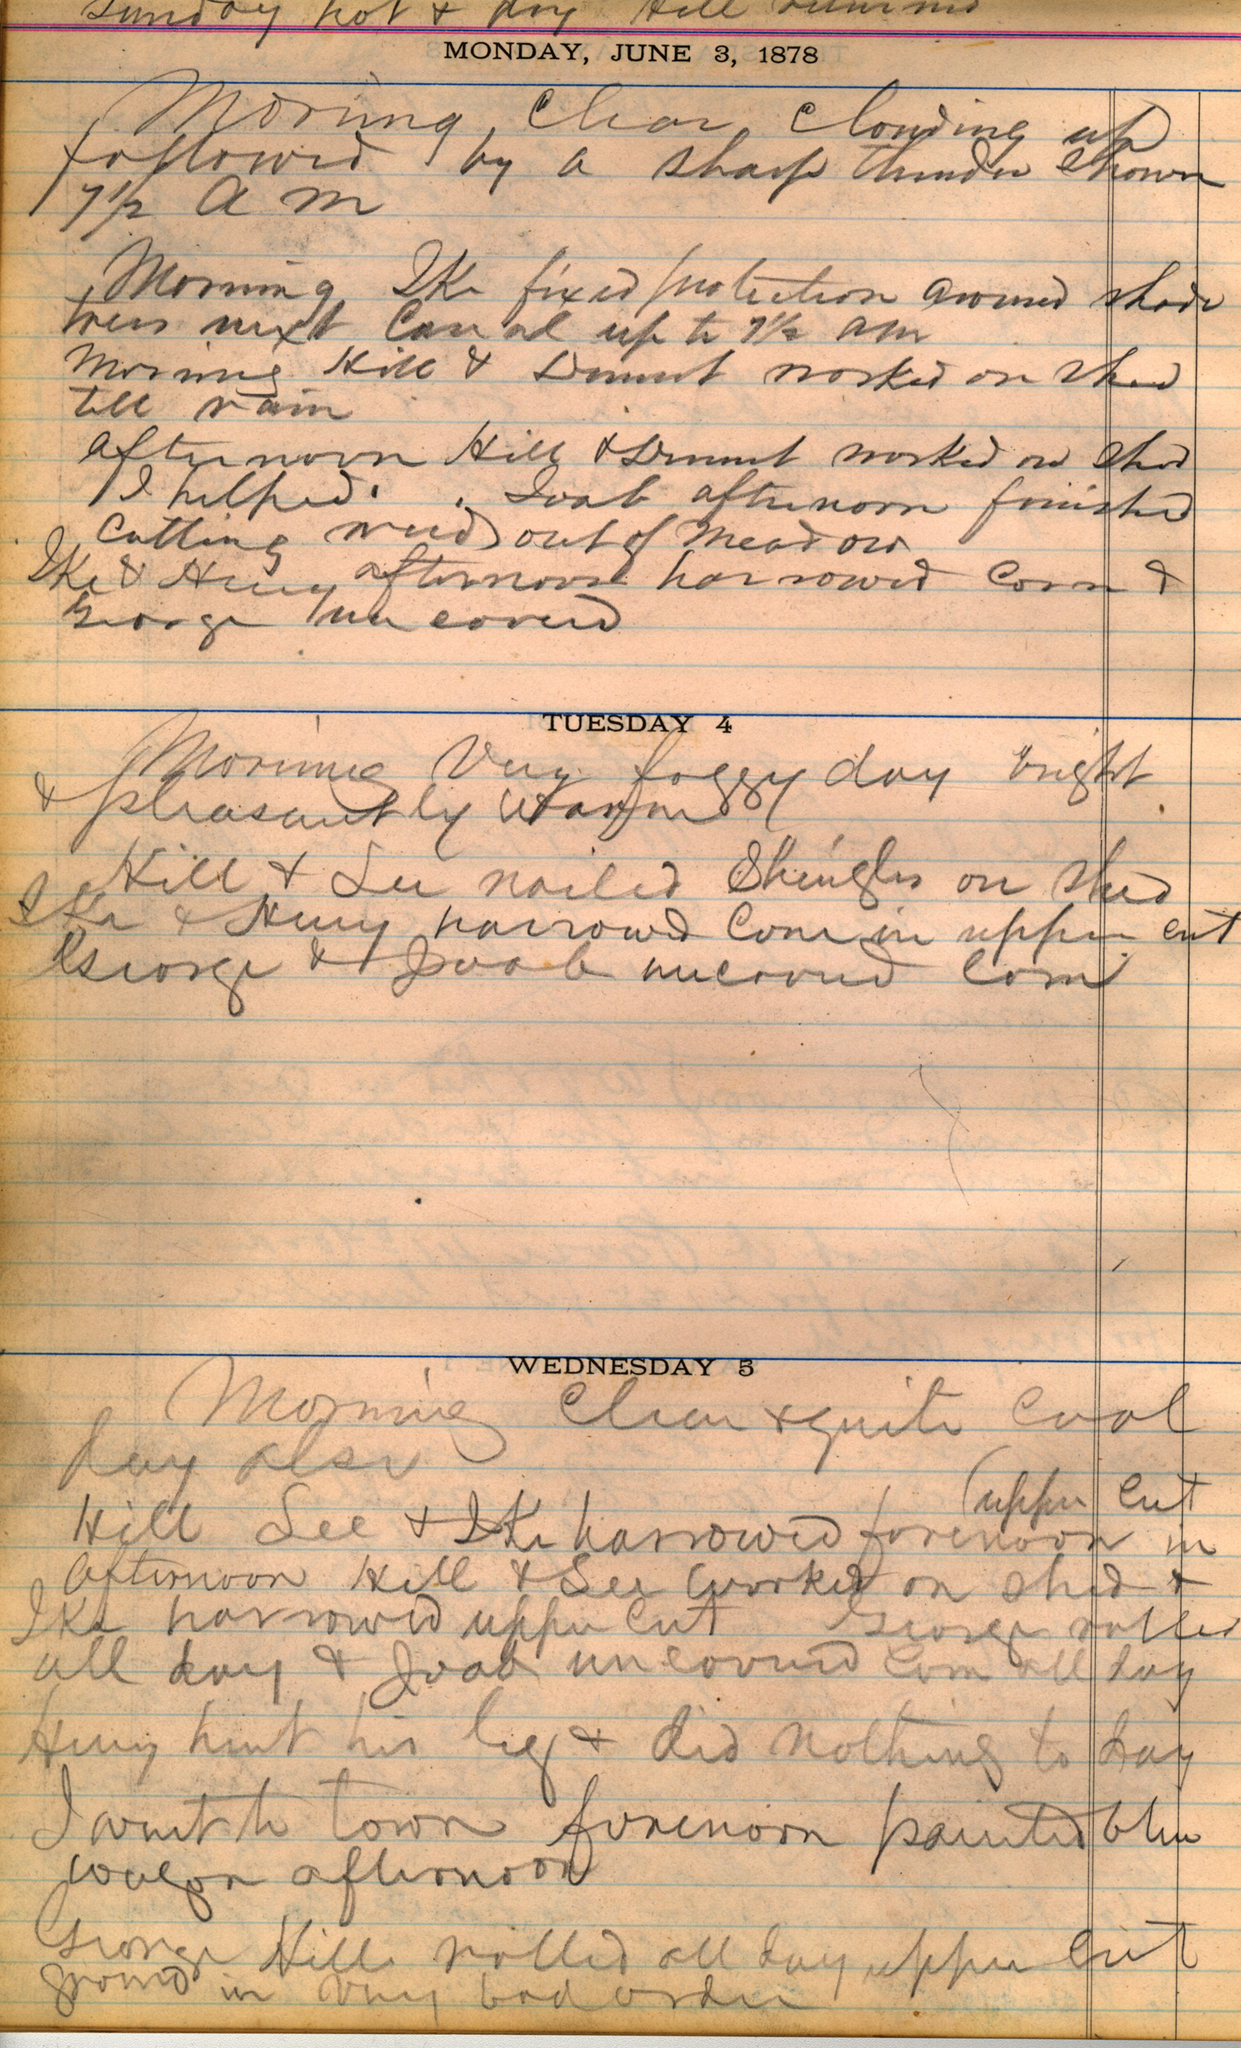 Sunday hot & dry Hill returned
MONDAY, JUNE 3, 1878
Morning Clear, Clouding up
followed by a sharp thunder Shower
7½ A M
Morning Ike fixed protection around shade
trees next Canal up to 7½ am
Morning Hill & worked on Shed
till rain
afternoon Hill & worked on Shed
I helped. Joab afternoon finished
Cutting weeds out of Meadow
Ike & Henry afternoon harrowed Corn &
George uncovered
TUESDAY 4
Morning Very foggy day bright
& pleasantly Warm
Hill & Lee nailed Shingles on Shed
Ike & Henry harrowed Corn in upper cut
George & Joab uncovered Corn
WEDNESDAY 5
Morning Clear & quite Cool
day also
(upper Cut
Hill Lee & Ike harrowed forenoon in
afternoon Hill & Lee worked on shed &
Ike harrowed upper Cut George rolled
all day & Joab uncovered Corn all day
Henry hurt his leg & did nothing to day
I went to town forenoon painted blue
wagon afternoon
George Hill rolled all day upper Cut
ground in Very bad order